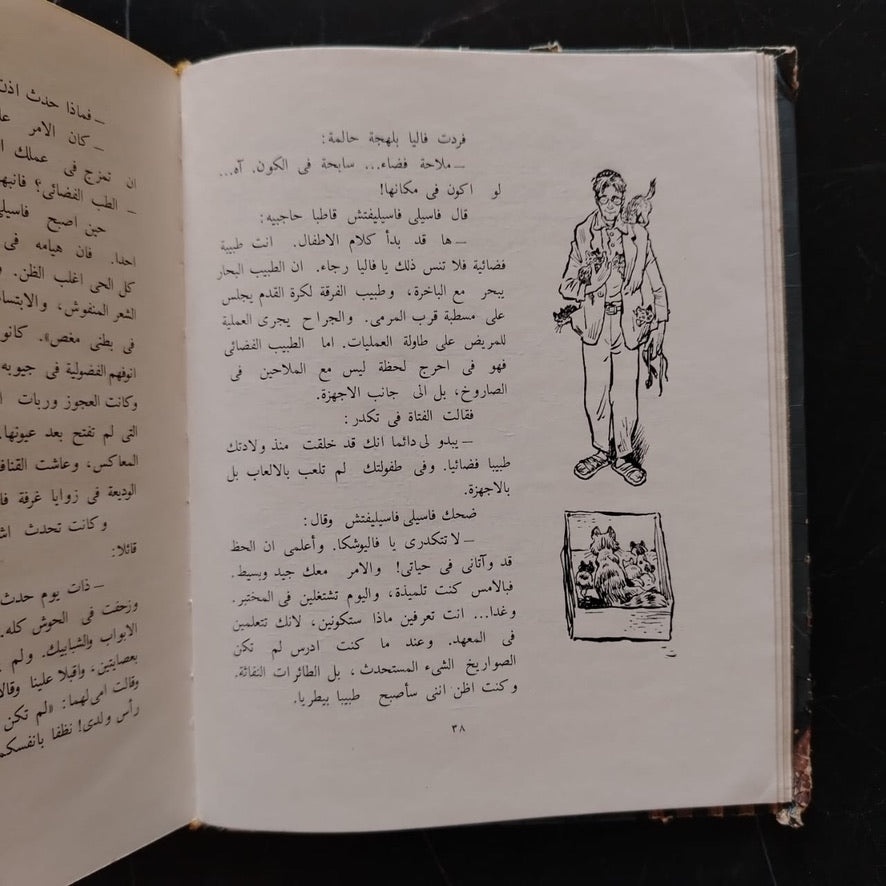 فردت فاليا بلهجة حالمة:
ــ ملاحة فضاء... سابحة فى الكون. آه...
لو اكون فى مكانها!
قال فاسيلى فاسيليفتش قاطبا حاجبيه:
ــ ها قد بدأ كلام الاطفال. انت طبيبة
فضائية فلا تنس ذلك يا فاليا رجاء. ان الطبيب البحار
يبحر مع الباخرة، وطبيب الفرقة لكرة القدم يجلس
على مسطبة قرب المرمى. والجراح يجرى العملية
للمريض على طاولة العمليات. اما الطبيب الفضائى
فهو فى احرج لحظة ليس مع الملاحين فى
الصاروخ، بل الى جانب الاجهزة.
فقالت الفتاة فى تكدر:
ــ يبدو لى دائما انك قد خلقت منذ ولادتك
طبيبا فضائيا. وفى طفولتك لم تلعب بالالعاب بل
بالاجهزة.
ضحك فاسيلى فاسيليفتش وقال:
ــ لا تتكدرى يا فاليوشكا. وأعلمى ان الحظ
قد وآتانى فى حياتى! والامر معك جيد وبسيط.
فبالامس كنت تلميذة، واليوم تشتغلين فى المختبر.
وغدا... انت تعرفين ماذا ستكونين، لانك تتعلمين
فى المعهد. وعند ما كنت ادرس لم تكن
الصواريخ الشىء المستحدث، بل الطائرات النفاثة.
وكنت اظن اننى سأصبح طبيبا بيطريا.
٣٨
ــ فماذا حدث اذن
ــ كان الامر
ان تمزج فى عملك
ــ الطب الفضائى؟ فانبه
حين اصبح فاسيلى
احدا. فان هيامه فى
كل الحى اغلب الظن.
الشعر المنفوش، والابتسا
فى بطنى مغص». كانو
انوفهم الفضولية فى جيوبه
وكانت العجوز وربات
التى لم تفتح بعد عيونها.
المعاكس، وعاشت القنافذ
الوديعة فى زوايا غرفة
وكانت تحدث
قائلا:
ــ ذات يوم حدث
وزحفت فى الحوش كله.
الابواب والشبابيك. ولم
بعصابتين، واقبلا علينا وقالا
وقالت امى لهما: «لم تكن
رأس ولدى! نظفا بانفسكم